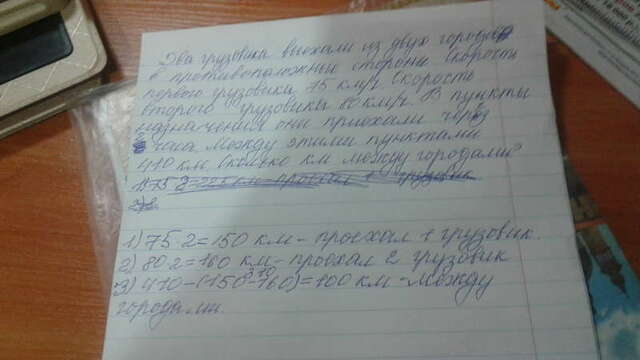 Два грузовика выехали из двух городов
в противоположные стороны Скорость
первого грузовика 75 км/ч Скорость
второго грузовика 80 км/ч. В пункты
назначения они приехали через
часа Между этими пунктами
410 км Сколько км между городами?
1) 75 2=225 км - проехал 1 грузовик
1) 75·2=150 км - проехал 1 грузовик.
2) 80·2=160 км - проехал 2 грузовик
310
3) 410-(150-160)=100 км - между
городами.